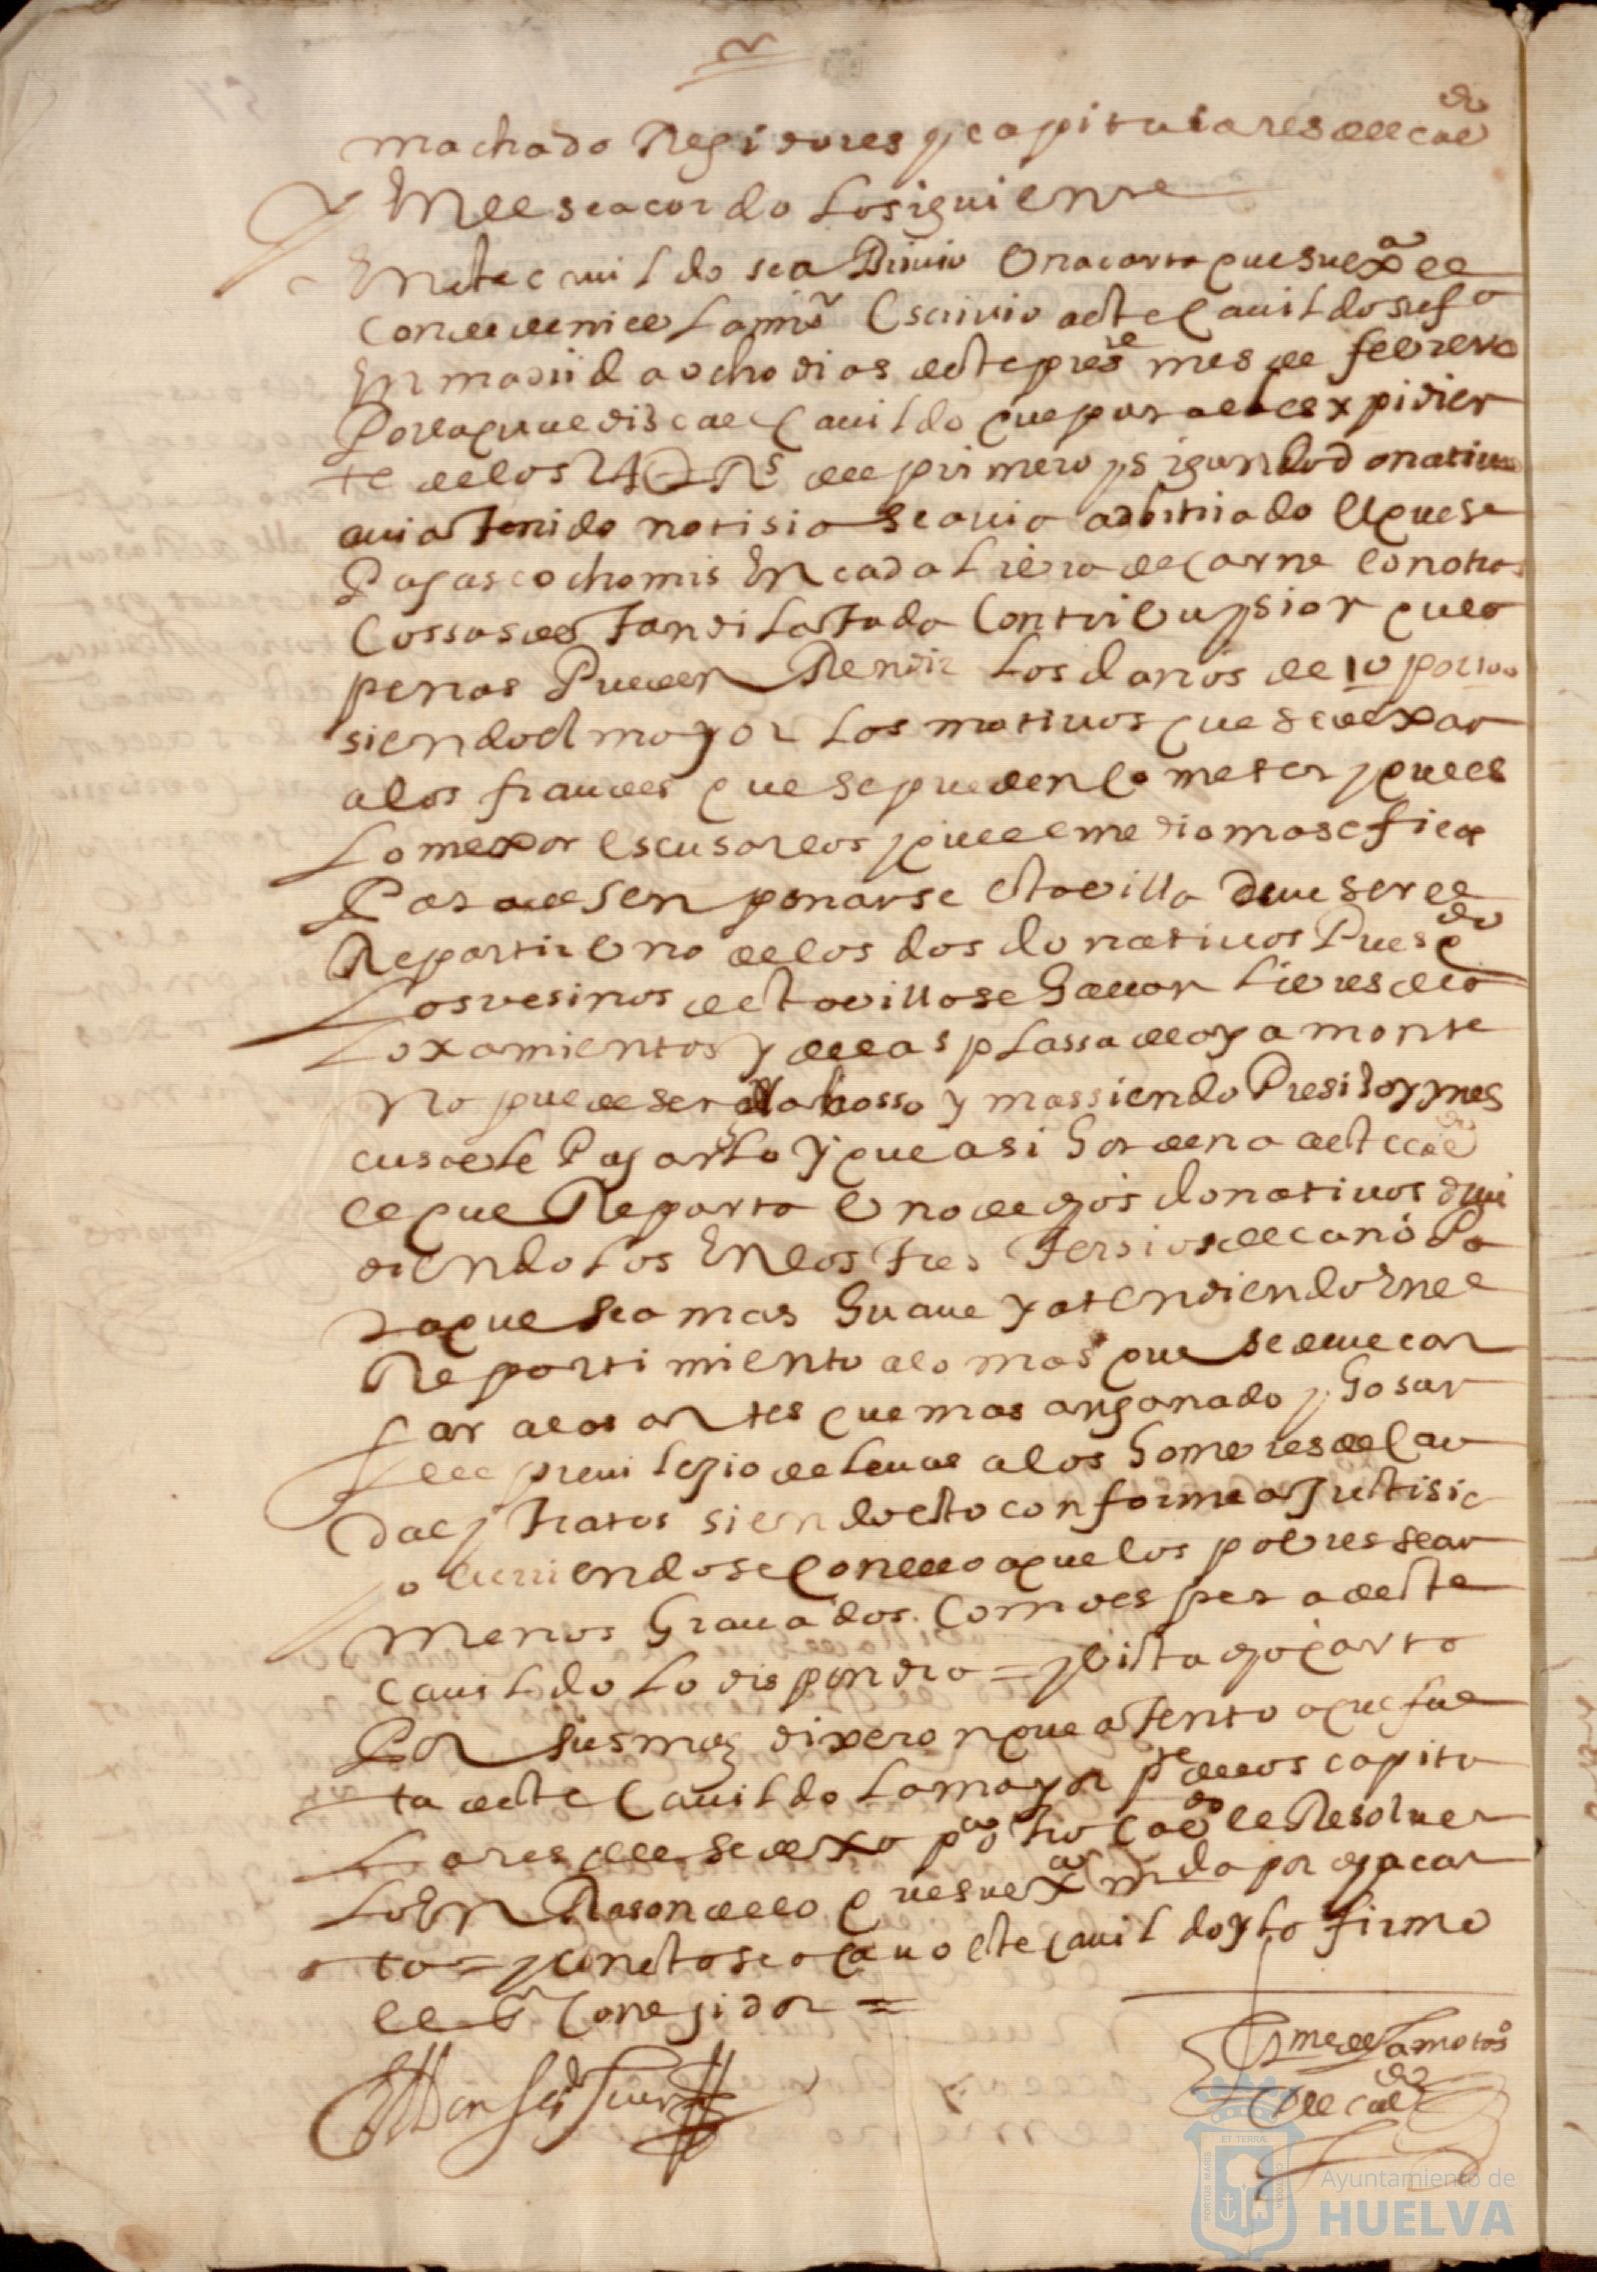 machado Regidores y capitulares del cau^do
En el se acordo lo siguiente
En este cauildo se a Bisto Una carta que su ex^a el
Conde de
Escriuio a este Cauildo su f^a
En madrid a ocho dias deste pres^te mes de febrero
Por la qual dise al Cauildo que para el expidien
te de los 24 R^s del primero y segundo donatiuo
auia tenido notisia se auia adbitriado el que se
Pagase ocho mrs En cada Libra de Carne Con otras
Cossas de tan dilatada Contribuysion que a
penas Pueden Rendir Los daños de 10 por 100
siendo el mayor Los motiuos que se dexan
a los fraudes que se pueden Cometer y que es
Lo mexor escusarlos y que el medio mas eficas
Para desenpeñarse esta villa deue ser el
Repartir Uno de los dos donatiuos Pues q^do
Los vesinos de esta villa se hallan Libres de alo
xamientos y de las plassa de ayamonte
No puede ser dañosso y mas siendo Presiso y ynes
cusable Pagarlo y que asi hordena a este cau^do
el que Reparta Uno de dhos donatiuos diui
diendolos En los tres tersios del año Pa
ra que sea mas Suaue y atendiendo En el
Repartimiento a lo mas que se deue car
gar a los antes que mas an ganado y Gosan
del preuilegio de leuas a los hombres de Cau
dal y tratos siendo esto conforme a Justisia
con ello a que los pobres sean
menos Grauados. Como espera de este
Cauildo lo dispondra = y Vista dha carta
Por sus mds dixeron que atento a que fal
ta a este Cauildo la mayor p^te de los capitu
lares del se dexa p^a otro Cau^do el Resoluer
lo En Rason de lo que su ex^a m^da por dha car
ta = y con esto se acauo este Cauildo y lo firmo
el S^r Corregidor =
Ayuntamiento de
HUELVA
PORTUS MARIS
ET TERRÆ
CUSTODIA